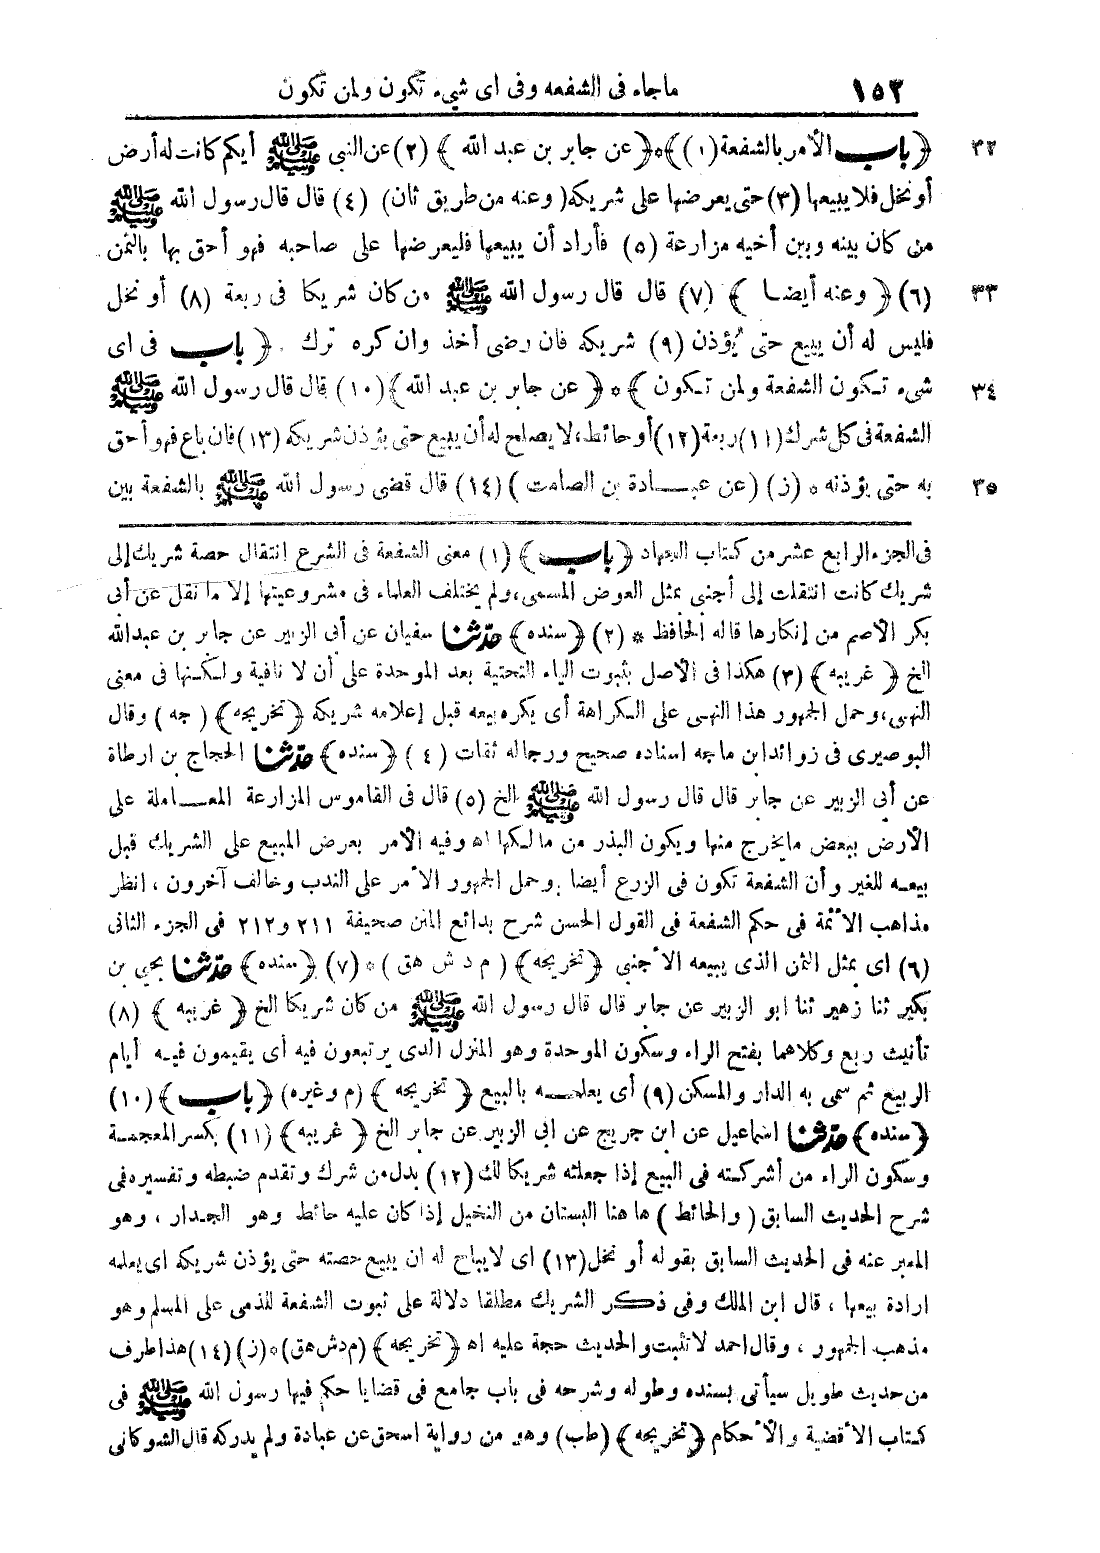 ١٥٣ ماجاء فى الشفعه وفى اى شيء تكون ولمن تكون
٣٢ ﴿ باب الأمر بالشفعة (١) ﴾ * ﴿ عن جابر بن عبد الله ﴾ (٢) عن النبي ﷺ أيكم كانت له أرض
أو نخل فلا يبيعها (٣) حتى يعرضها على شريكه ( وعنه من طريق ثان ) (٤) قال قال رسول الله ﷺ
من كان بينه وبين أخيه مزارعة (٥) فأراد أن يبيعها فليعرضها على صاحبه فهو أحق بها بالثمن
٣٣ (٦) ﴿ وعنه أيضا ﴾ (٧) قال قال رسول الله ﷺ من كان شريكا فى ربعة (٨) أو نخل
فليس له أن يبيع حتى يُؤذن (٩) شريكه فان رضى أخذ وان كره ترك . ﴿ باب فى اى
٣٤ شيء تكون الشفعة ولمن تكون ﴾ * ﴿ عن جابر بن عبد الله ﴾ (١٠) قال قال رسول الله ﷺ
الشفعة فى كل شرك (١١) ربعة (١٢) أو حائط، لا يصلح له أن يبيع حتى يؤذن شريكه (١٣) فان باع فهو أحق
٣٥ به حتى يؤذنه * (ز) (عن عبادة بن الصامت ) (١٤) قال قضى رسول الله ﷺ بالشفعة بين
فى الجزء الرابع عشر من كتاب الجهاد ﴿ باب ﴾ (١) معنى الشفعة فى الشرع انتقال حصة شريك إلى
شريك كانت انتقلت إلى أجنبي بمثل العوض المسمى، ولم يختلف العلماء فى مشروعيتها إلا ما نقل عن أبى
بكر الاصم من إنكارها قاله الحافظ * (٢) ﴿ سنده ﴾ حدّثنا سفيان عن أبى الزبير عن جابر بن عبدالله
الخ ﴿ غريبه ﴾ (٣) هكذا فى الأصل بثبوت الياء التحتية بعد الموحدة على أن لا نافية ولكنها فى معنى
النهى، وحمل الجمهور هذا النهى على الكراهة أى يكره بيعه قبل إعلامه شريكه ﴿ تخريجه ﴾ ( جه ) وقال
البوصيرى فى زوائد ابن ماجه اسناده صحيح ورجاله ثقات (٤) ﴿ سنده ﴾ حدّثنا الحجاج بن ارطاة
عن أبى الزبير عن جابر قال قال رسول الله ﷺ الخ (٥) قال فى القاموس المزارعة المعاملة على
الأرض ببعض مايخرج منها ويكون البذر من مالكها اه وفيه الأمر بعرض المبيع على الشريك قبل
بيعه للغير وأن الشفعة تكون فى الزرع أيضا وحمل الجمهور الأمر على الندب وخالف آخرون ، انظر
مذاهب الأئمة فى حكم الشفعة فى القول الحسن شرح بدائع المنن صحيفة ٢١١ و٢١٢ فى الجزء الثانى
(٦) اى بمثل الثمن الذى يبيعه الأجنبي ﴿ تخريجه ﴾ ( م د ش هق ) * (٧) ﴿ سنده ﴾ حدّثنا يحيى بن
بكير ثنا زهير ثنا ابو الزبير عن جابر قال قال رسول الله ﷺ من كان شريكا الخ ﴿ غريبه ﴾ (٨)
تأنيث ربع وكلاهما بفتح الراء وسكون الموحدة وهو المنزل الذى يرتبعون فيه أى يقيمون فيه أيام
الربيع ثم سمى به الدار والمسكن (٩) أى يعلمه بالبيع ﴿ تخريجه ﴾ (م وغيره) ﴿ باب ﴾ (١٠)
﴿ سنده ﴾ حدّثنا اسماعيل عن ابن جريج عن ابى الزبير عن جابر الخ ﴿ غريبه ﴾ (١١) بكسر المعجمة
وسكون الراء من أشركته فى البيع إذا جعلته شريكا لك (١٢) بدل من شرك وتقدم ضبطه وتفسيره فى
شرح الحديث السابق ( والحائط ) ها هنا البستان من النخيل إذا كان عليه حائط وهو الجدار ، وهو
المعبر عنه فى الحديث السابق بقوله أو نخل (١٣) اى لايباح له ان يبيع حصته حتى يؤذن شريكه اى يعلمه
ارادة بيعها ، قال ابن الملك وفى ذكر الشريك مطلقا دلالة على ثبوت الشفعة للذمى على المسلم وهو
مذهب الجمهور ، وقال احمد لا تثبت والحديث حجة عليه اه ﴿ تخريجه ﴾ (م د ش هق) * (ز) (١٤) هذا طرف
من حديث طويل سيأتى بسنده وطوله وشرحه فى باب جامع فى قضايا حكم فيها رسول الله ﷺ فى
كتاب الأقضية والأحكام ﴿ تخريجه ﴾ (طب) وهو من رواية اسحق عن عبادة ولم يدركه قال الشوكانى